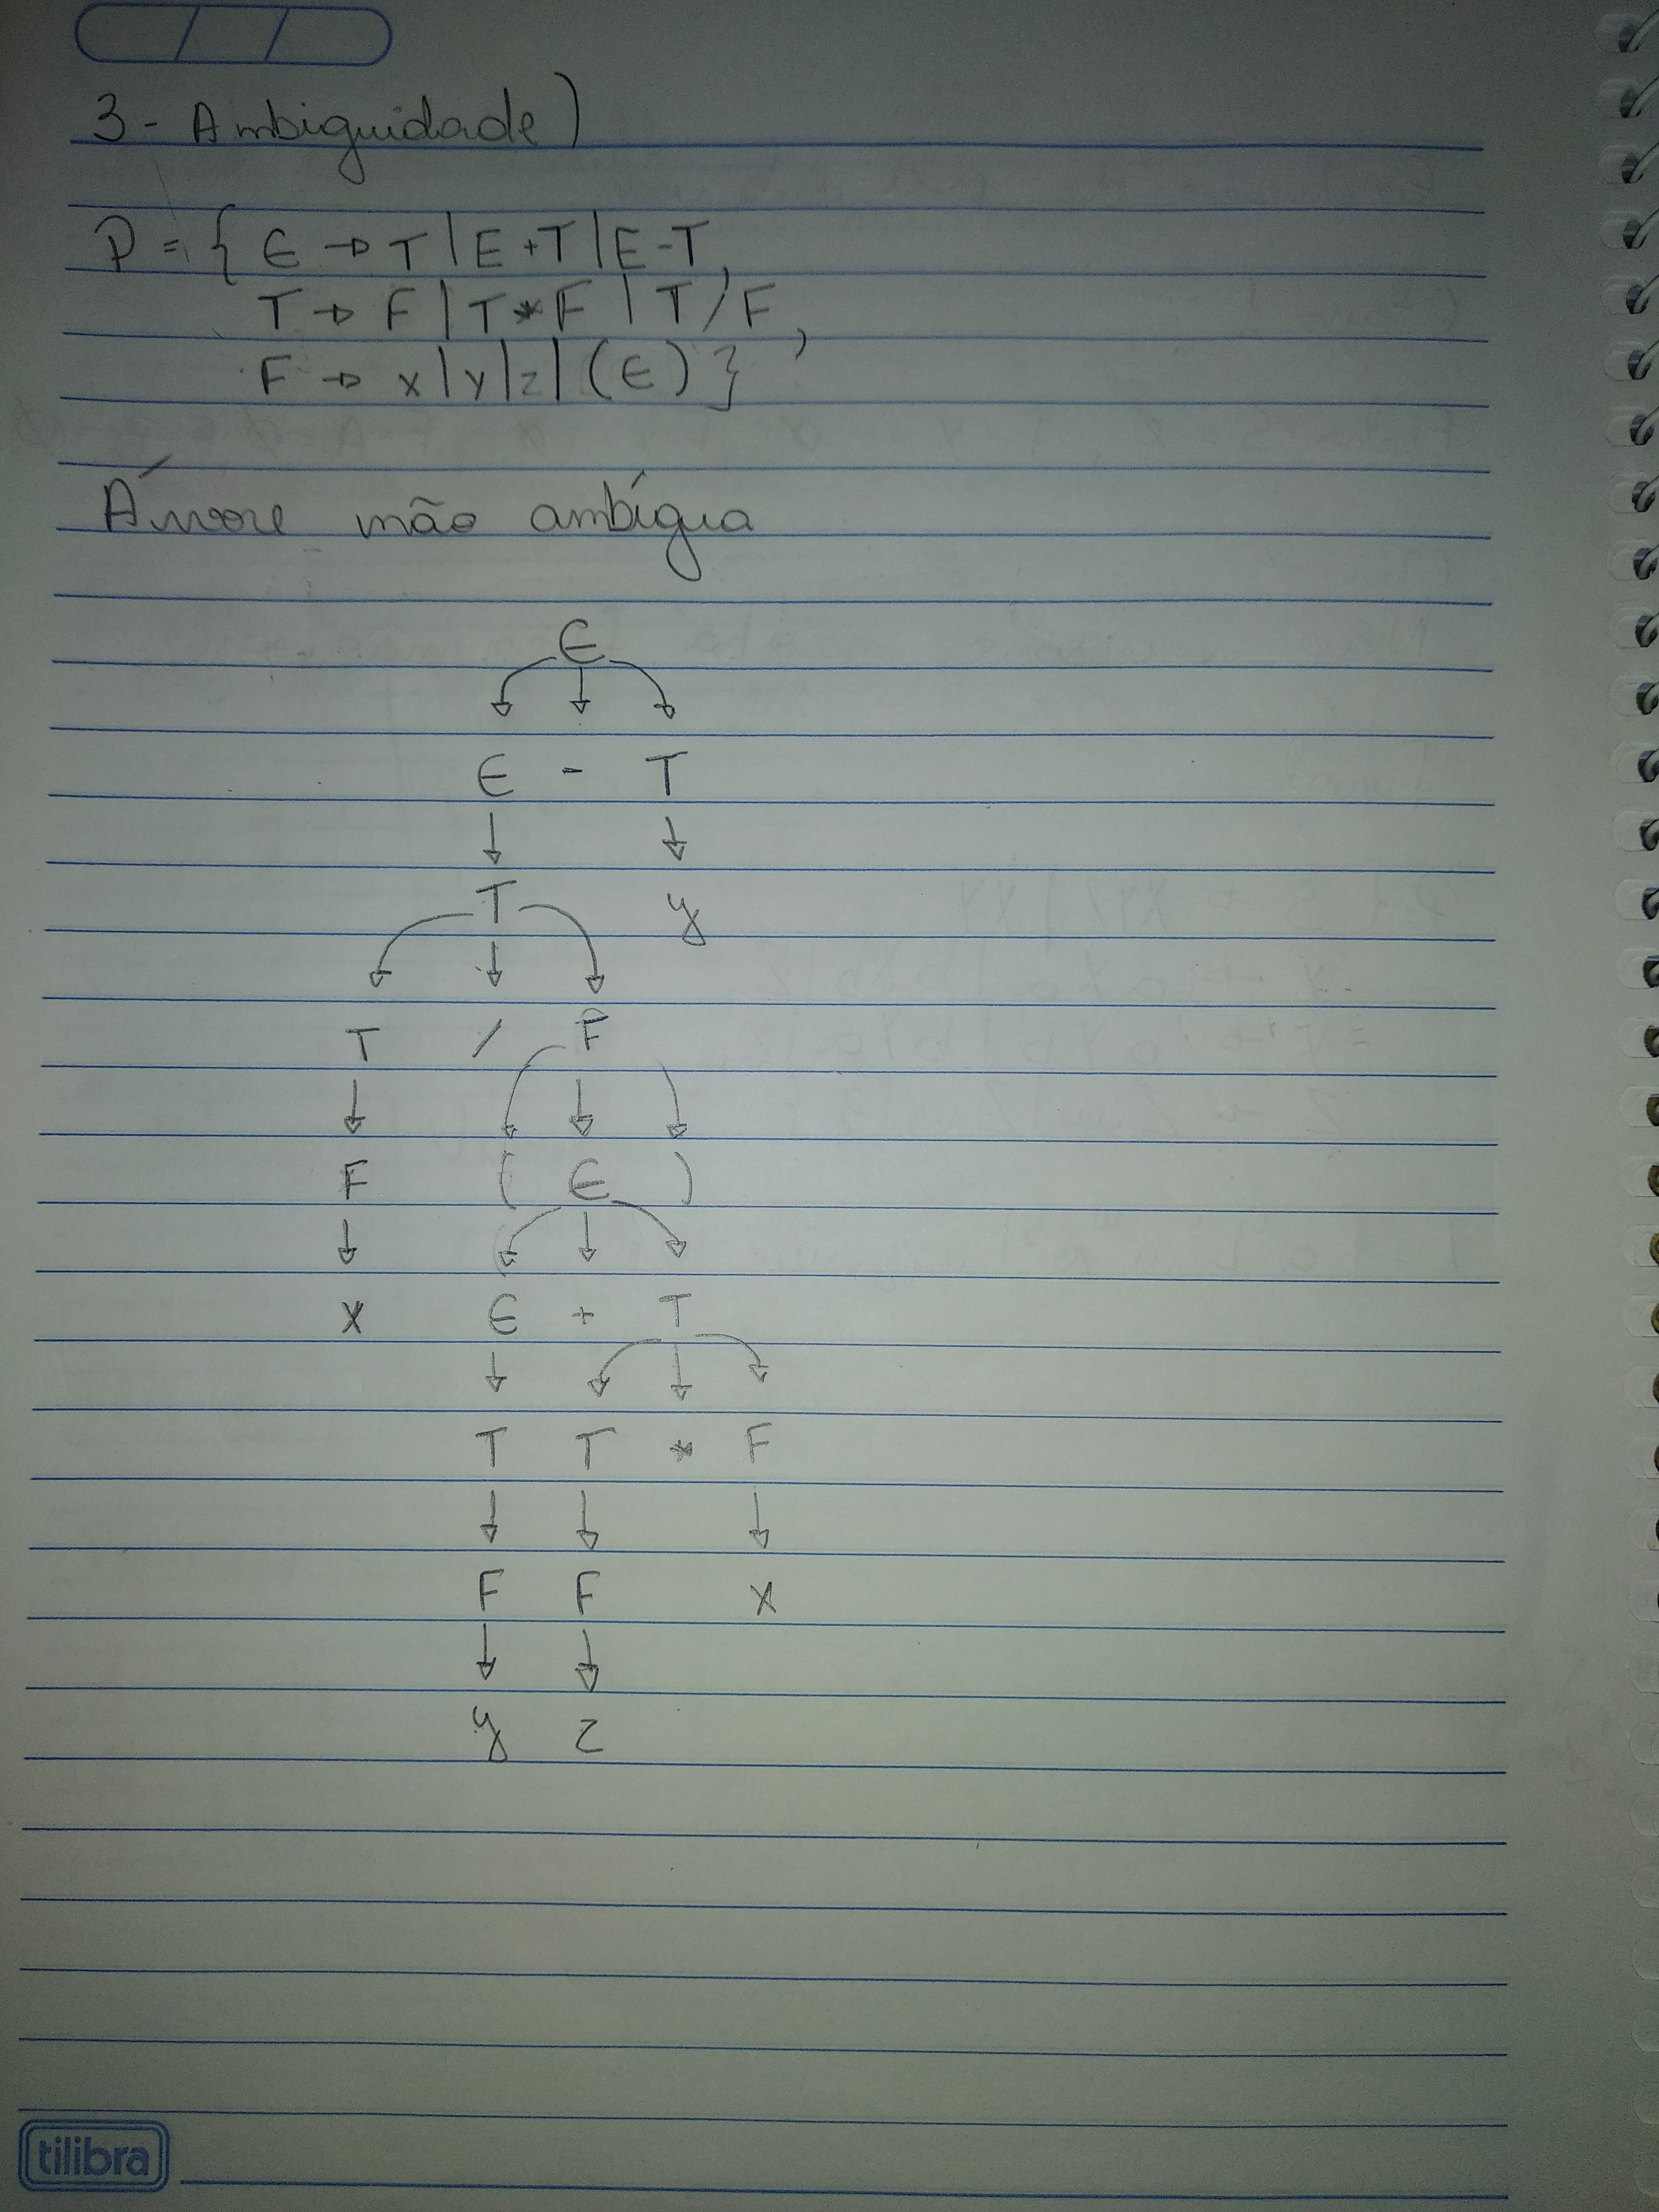 3 - Ambiguidade)
P = { E → T | E + T | E - T,
T → F | T * F | T / F,
F → x | y | z | (E) }
Árvore não ambígua
E
E - T
T y
T / F
F ( E )
x E + T
T T * F
F F x
y z
tilibra